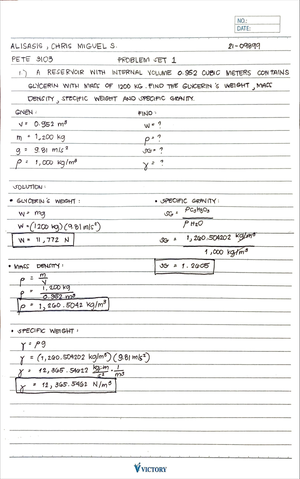 NO.:
DATE:
ALISASIS, CHRIS MIGUEL S. 21-09899
PETE 3103 PROBLEM SET 1
1.) A RESERVOIR WITH INTERNAL VOLUME 0.952 CUBIC METERS CONTAINS
GLYCERIN WITH MASS OF 1200 KG. FIND THE GLYCERIN'S WEIGHT, MASS
DENSITY, SPECIFIC WEIGHT AND SPECIFIC GRAVITY.
GIVEN: FIND:
V = 0.952 m³ W = ?
m = 1,200 kg ρ = ?
g = 9.81 m/s² SG = ?
ρ = 1,000 kg/m³ γ = ?
SOLUTION:
• GLYCERIN'S WEIGHT: • SPECIFIC GRAVITY:
W = mg SG = ρC₃H₈O₃ / ρH₂O
W = (1200 kg)(9.81 m/s²)
W = 11,772 N SG = 1,260.504202 kg/m³ / 1,000 kg/m³
• MASS DENSITY: SG = 1.2605
ρ = m / V
ρ = 1,200 kg / 0.952 m³
ρ = 1,260.5042 kg/m³
• SPECIFIC WEIGHT:
γ = ρg
γ = (1,260.504202 kg/m³)(9.81 m/s²)
γ = 12,365.54622 kg·m/s² · 1/m³
γ = 12,365.5462 N/m³
VICTORY